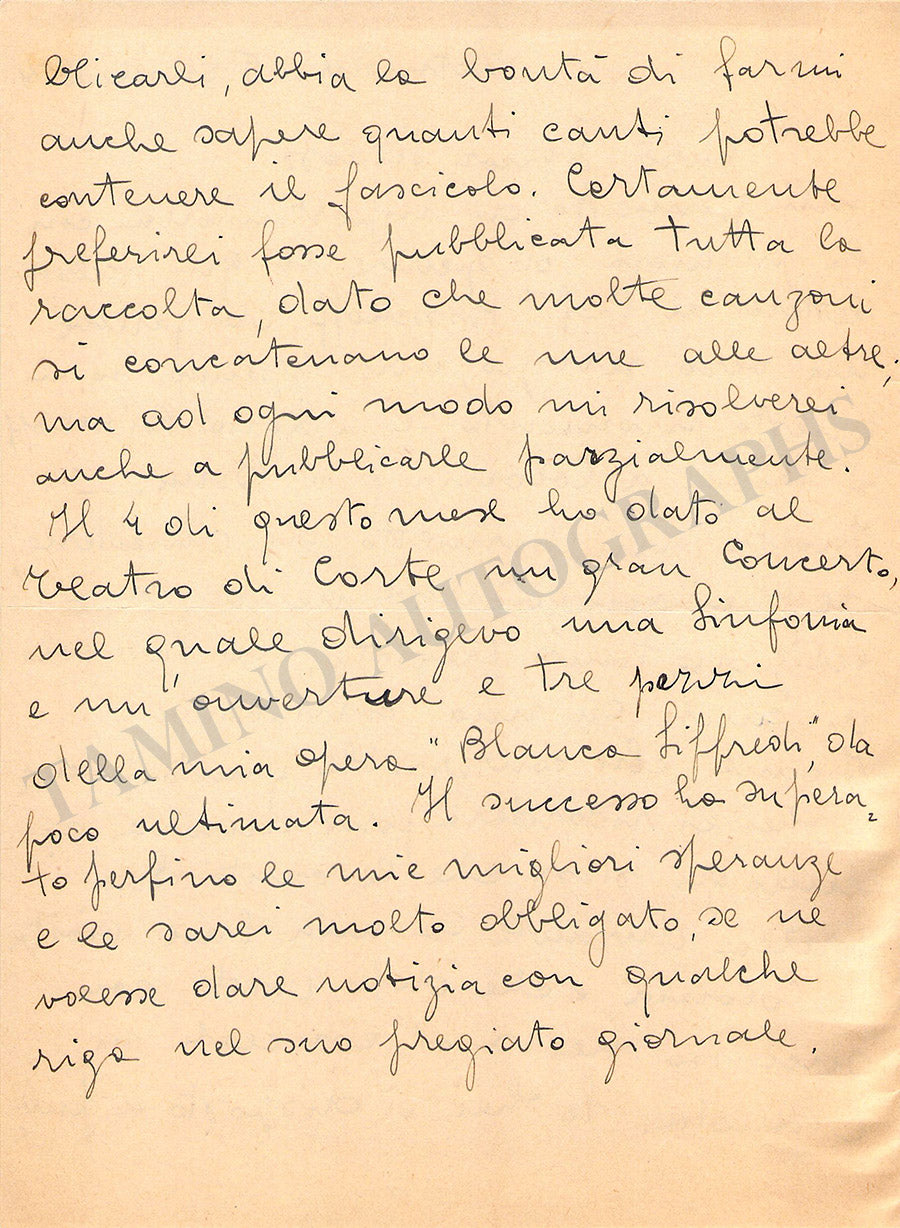 blicarli, abbia la bontà di farmi
anche sapere quanti canti potrebbe
contenere il fascicolo. Certamente
preferirei fosse pubblicata tutta la
raccolta, dato che molte canzoni
si concatenano le une alle altre;
ma ad ogni modo mi risolverei
anche a pubblicarle parzialmente.
Il 4 di questo mese ho dato al
Teatro di Corte un gran Concerto,
nel quale dirigevo una Sinfonia
e un'ouverture e tre pezzi
della mia opera "Blanca Siffredi", da
poco ultimata. Il successo ha supera-
to perfino le mie migliori speranze
e le sarei molto obbligato, se ne
volesse dare notizia con qualche
riga nel suo pregiato giornale.
TAMINO AUTOGRAPHS